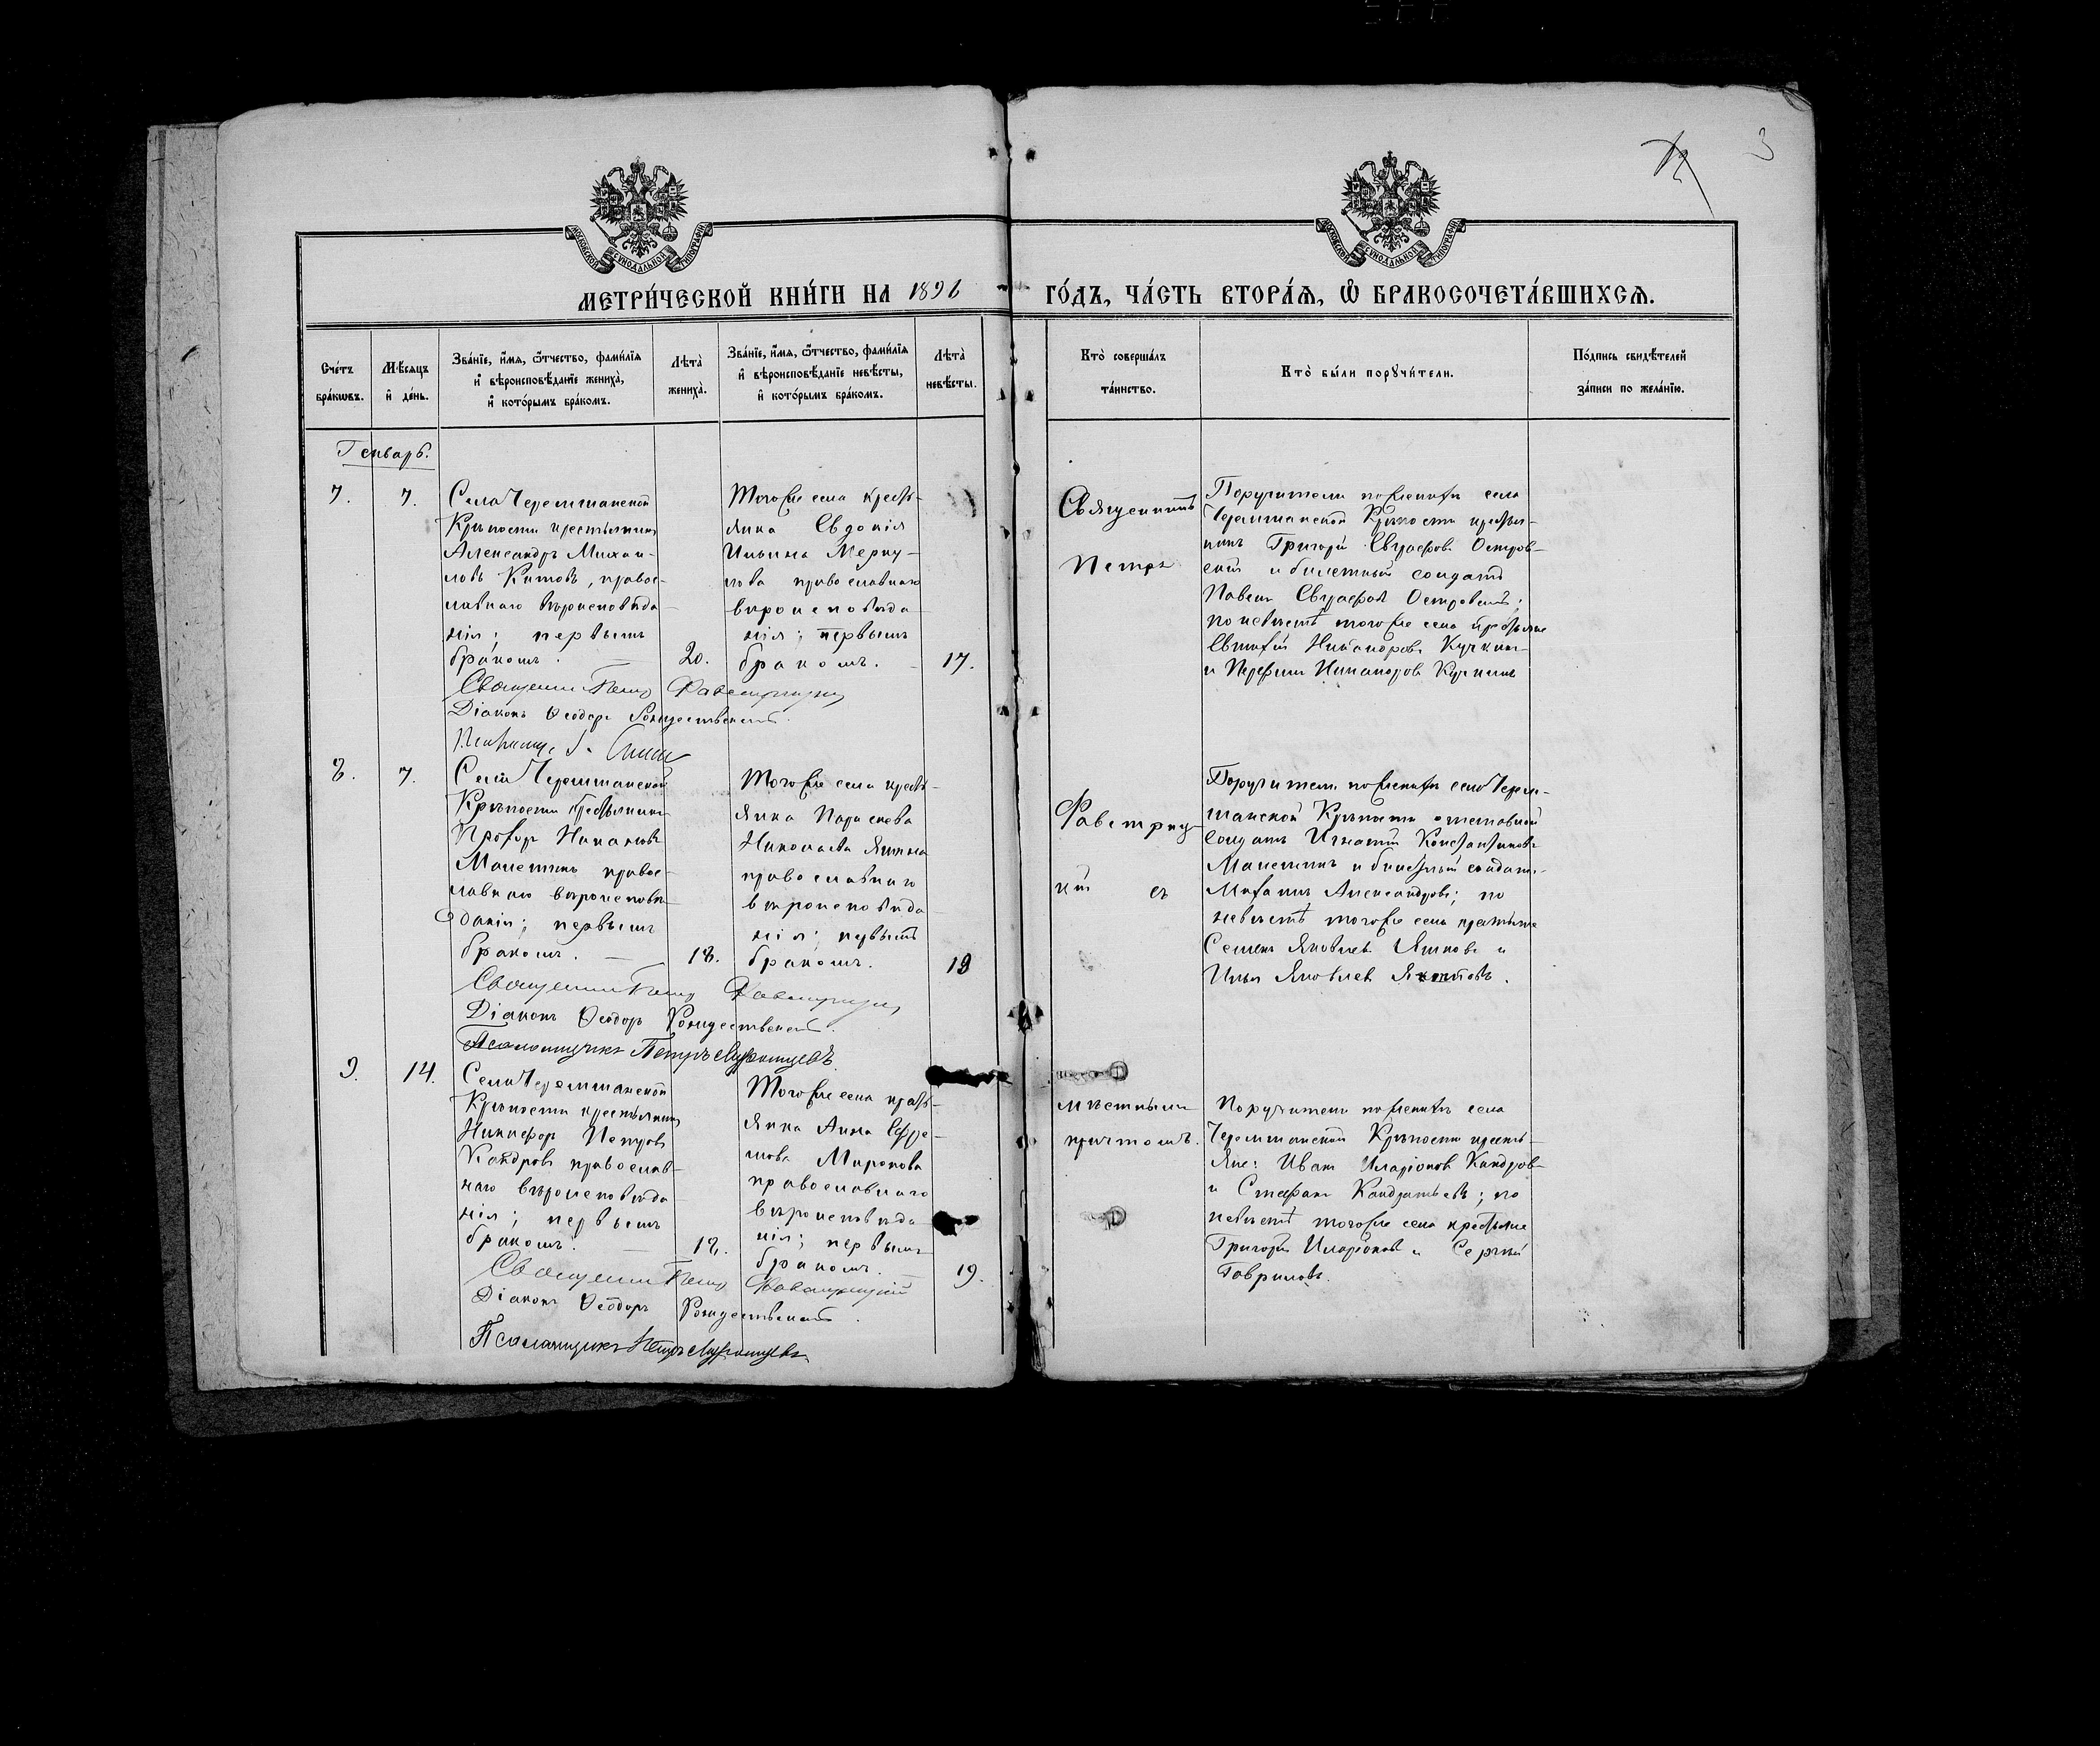 3
МОСКОВСКОЙ СѴНОДАЛЬНОЙ ТИПОГРАФІИ
МОСКОВСКОЙ СѴНОДАЛЬНОЙ ТИПОГРАФІИ
МЕТРИ́ЧЕСКОЙ КНИ́ГИ НА 1896 ГО́ДЪ, ЧА́СТЬ ВТОРА́Я, Ѿ БРАКОСОЧЕТА́ВШИХСЯ.
Сче́тъ бра́кωвъ.
Мѣ́сяцъ и҆ де́нь.
Зва́нїе, и҆́мя, ѻ҆́тчество, фами́лїя
и҆ вѣроисповѣ́данїе жениха̀,
и҆ кото́рымъ бра́комъ.
Лѣта̀ жениха̀.
Зва́нїе, и҆́мя, ѻ҆́тчество, фами́лїя
и҆ вѣроисповѣ́данїе невѣ́сты,
и҆ кото́рымъ бра́комъ.
Лѣта̀ невѣ́сты.
Кто̀ соверша́лъ
та́инство.
Кто̀ бы́ли порꙋчи́тели.
По́дпись свидѣ́телей
за́писи по жела́нїю.
Генварь.
7.
7.
Села Черемшанской
Крѣпости крестьянинъ
Александръ Михаи-
ловъ Китовъ, правос-
лавнаго вѣроисповѣда
нія; первымъ
бракомъ.
20.
Тогоже села кресть-
янка Евдокія
Ильина Мерку-
лова православнаго
вѣроисповѣда
нія; первымъ
бракомъ.
17.
Священникъ
Петръ
Поручители по женихѣ села
Черемшанской Крѣпости крестья-
нинъ Григорій Евграфовъ Островс-
кій и билетный солдатъ
Павелъ Евграфовъ Островскій;
по невѣстѣ тогоже села крестьяне
Евтихій Никаноровъ Кучкинъ
и Никаноровъ
Священникъ Петръ Фаветрицкій
Діаконъ Ѳеодоръ Рождественскій.
8.
7.
Села Черемшанской
Крѣпости крестьянинъ
Прохоръ
правос-
лавнаго вѣроисповѣ-
данія; первымъ
бракомъ.
18.
Тогоже села кресть-
янка Параскева
Николаева Яшина
православнаго
вѣроисповѣда
нія; первымъ
бракомъ.
19
Фаветриц-
кій съ
Поручители по женихѣ села Черем-
шанской Крѣпости отставной
солдатъ Игнатій Константиновъ
и билетный солдатъ
Александровъ; по
невѣстѣ тогоже села крестьяне
Семенъ Яковлевъ и
Илья Яковлевъ
Священникъ Петръ Фаветрицкій
Діаконъ Ѳеодоръ Рождественскій.
Псаломщикъ Петръ
9.
14.
Села Черемшанской
Крѣпости крестьянинъ
Никифоръ Петровъ
православ-
наго вѣроисповѣда
нія; первымъ
бракомъ.
18.
Тогоже села кресть-
янка Анна Ефре-
мова Миронова
православнаго
вѣроисповѣда
нія; первымъ
бракомъ.
19.
мѣстнымъ
причтомъ.
Поручители по женихѣ села
Черемшанской Крѣпости кресть-
яне: Иванъ Иларіоновъ
и Стефанъ Кондратьевъ; по
невѣстѣ тогоже села крестьяне
Григорій Иларіоновъ и Сергѣй
Гавриловъ.
Священникъ Петръ Фаветрицкій
Діаконъ Ѳеодоръ Рождественскій.
Псаломщикъ Петръ